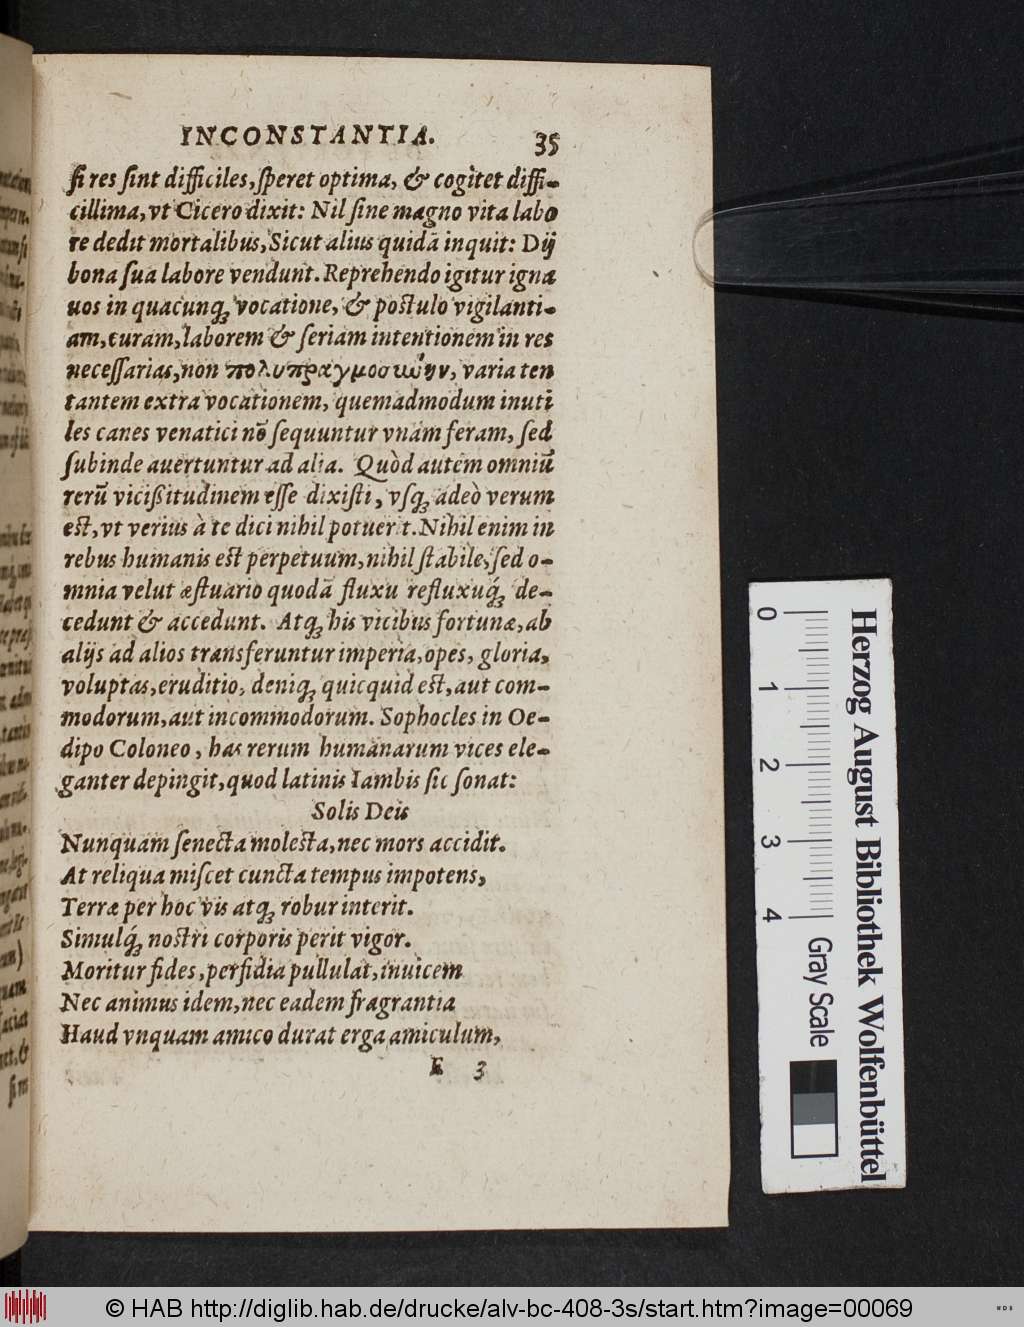 INCONSTANTIA. 35
ſi res ſint difficiles, ſperet optima, & cogitet diffi-
cillima, vt Cicero dixit: Nil ſine magno vita labo
re dedit mortalibus, Sicut alius quidã inquit: Dij
bona ſua labore vendunt. Reprehendo igitur igna
uos in quacunqꝫ vocatione, & poſtulo vigilanti-
am, curam, laborem & ſeriam intentionem in res
neceſſarias, non πολυπραγμοσ, varia ten
tantem extra vocationem, quemadmodum inuti
les canes venatici nõ ſequuntur vnam feram, ſed
ſubinde auertuntur ad alia. Quòd autem omniũ
rerũ vicißitudinem eſſe dixiſti, vſqꝫ adeò verum
eſt, vt verius à te dici nihil potuerit. Nihil enim in
rebus humanis eſt perpetuum, nihil ſtabile, ſed o-
mnia velut æſtuario quodã fluxu refluxuq́ꝫ de-
cedunt & accedunt. Atqꝫ his vicibus fortunæ, ab
alijs ad alios transferuntur imperia, opes, gloria,
voluptas, eruditio, deniqꝫ quicquid eſt, aut com-
modorum, aut incommodorum. Sophocles in Oe-
dipo Coloneo, has rerum humanarum vices ele-
ganter depingit, quod latinis Iambis ſic ſonat:
Solis Deis
Nunquam ſenecta moleſta, nec mors accidit.
At reliqua miſcet cuncta tempus impotens,
Terræ per hoc vis atqꝫ robur interit.
Simulq́ꝫ noſtri corporis perit vigor.
Moritur fides, perfidia pullulat, inuicem
Nec animus idem, nec eadem fragrantia
Haud vnquam amico durat erga amiculum,
E 3
Herzog August Bibliothek Wolfenbüttel
0 1 2 3 4 Gray Scale
© HAB http://diglib.hab.de/drucke/alv-bc-408-3s/start.htm?image=00069